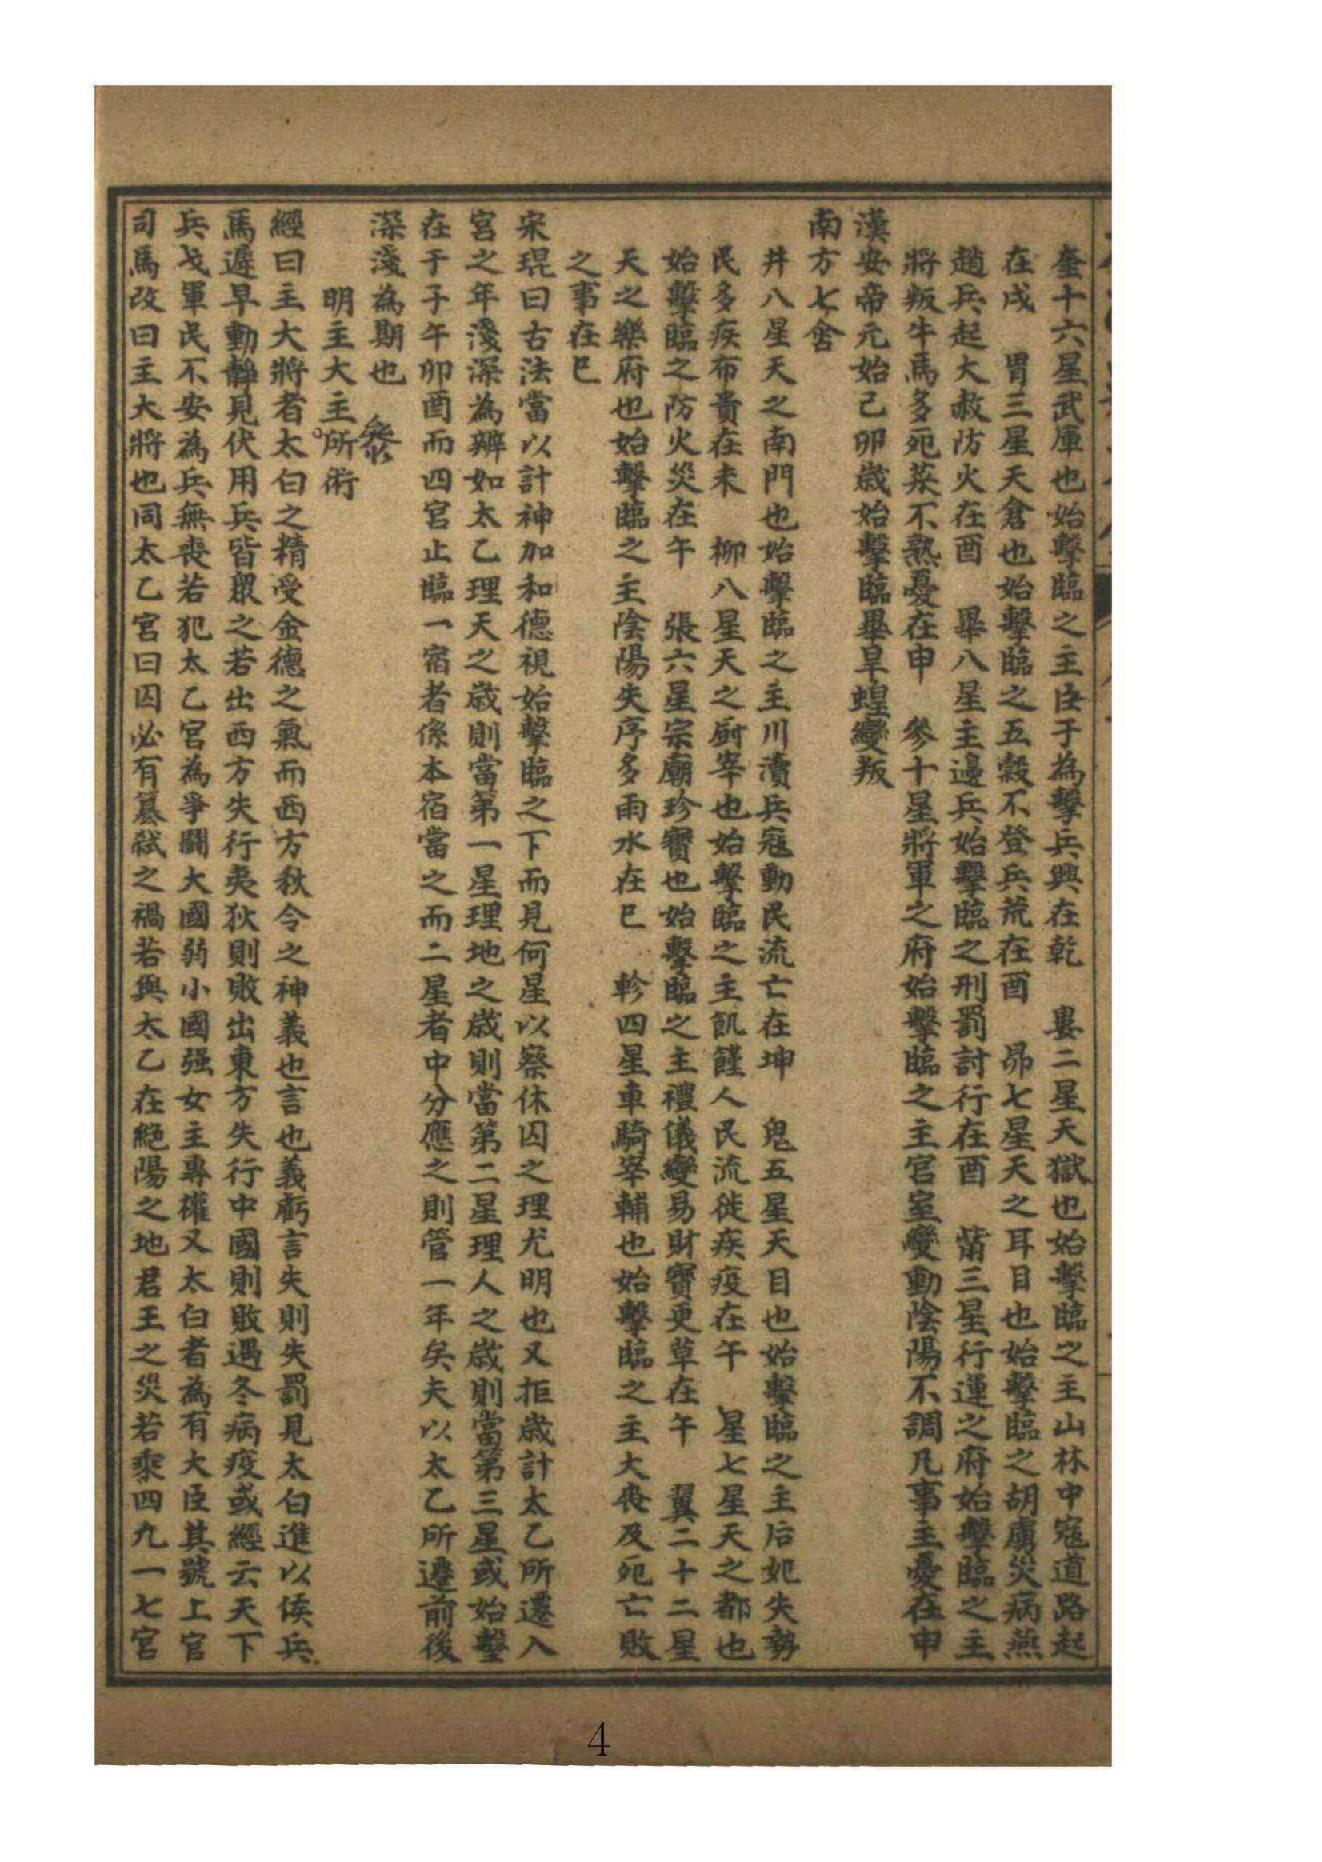 奎十六星武庫也始擊臨之主臣子為擊兵興在乾　婁二星天獄也始擊臨之主山林中寇道路起
在戌　胃三星天倉也始擊臨之五穀不登兵荒在酉　昴七星天之耳目也始擊臨之胡虜災病燕
趙兵起大赦防火在酉　畢八星主邊兵始擊臨之刑罰討行在酉　觜三星行運之府始擊臨之主
將叛牛馬多死菜不熟憂在申　參十星將軍之府始擊臨之主宮室變動陰陽不調凡事主憂在申
漢安帝元始己卯歲始擊臨畢旱蝗變叛
南方七舍
井八星天之南門也始擊臨之主川瀆兵寇動民流亡在坤　鬼五星天目也始擊臨之主后妃失勢
民多疾布貴在未　柳八星天之廚宰也始擊臨之主飢饉人民流徙疾疫在午　星七星天之都也
始擊臨之防火災在午　張六星宗廟珍寶也始擊臨之主禮儀變易財寶更草在午　翼二十二星
天之樂府也始擊臨之主陰陽失序多雨水在巳　軫四星車騎宰輔也始擊臨之主大喪及死亡敗
之事在巳
宋琨曰古法當以計神加和德視始擊臨之下而見何星以察休囚之理尤明也又拒歲計太乙所遷入
宮之年淺深為辨如太乙理天之歲則當第一星理地之歲則當第二星理人之歲則當第三星或始擊
在于子午卯酉而四宮止臨一宿者係本宿當之而二星者中分應之則管一年矣夫以太乙所遷前後
深淺為期也
明主大主所術
參
經曰主大將者太白之精受金德之氣而西方秋令之神義也言也義虧言失則失罰見太白進以侯兵
馬遲早動靜見伏用兵皆眾之若出西方失行夷狄則敗出東方失行中國則敗遇冬病疫或經云天下
兵戈軍民不安為兵無喪若犯太乙宮為爭鬪大國弱小國强女主專權又太白者為有大臣其號上官
司馬改曰主大將也同太乙宮曰囚必有簒弑之禍若與太乙在絕陽之地君王之災若乘四九一七宮
4